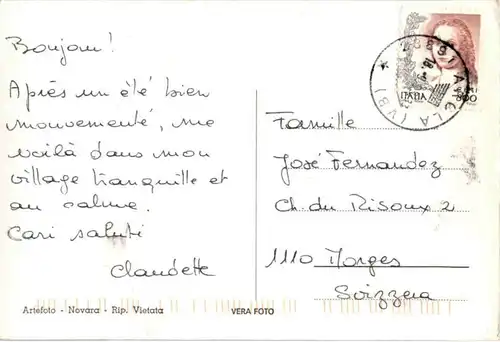 Bonjour!
Après un été bien
mouvementé, me
voilà dans mon
village tranquille et
au calme.
Cari saluti
Claudette
Artefoto - Novara - Rip. Vietata
VERA FOTO
ITALIA
800
(VB)
Famille
José Fernandez
Ch. du Risoux 2
1110 Morges
Svizzera